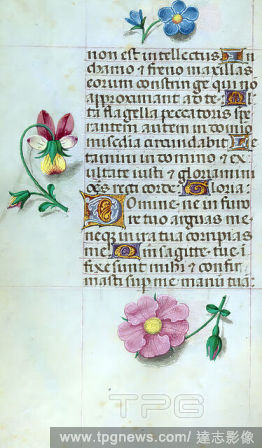 non est intellectus In
chamo et freno maxillas
eorum constringe qui no
approximant ad te M
ti flagella peccatoris spe
rantem autem in domino
misẽdia circũdabit Le
tamini in domino et ex
ultate iusti et gloriamini
oẽs recti corde Gloria:
Domine ne in furo
re tuo arguas me:
neqȝ in ira tua corripias
me Qm̃ sagitte tue i
fixe sunt mihi et confir
masti sup me manũ tuã:
TPG
www.tpgnews.com/ 達志影像